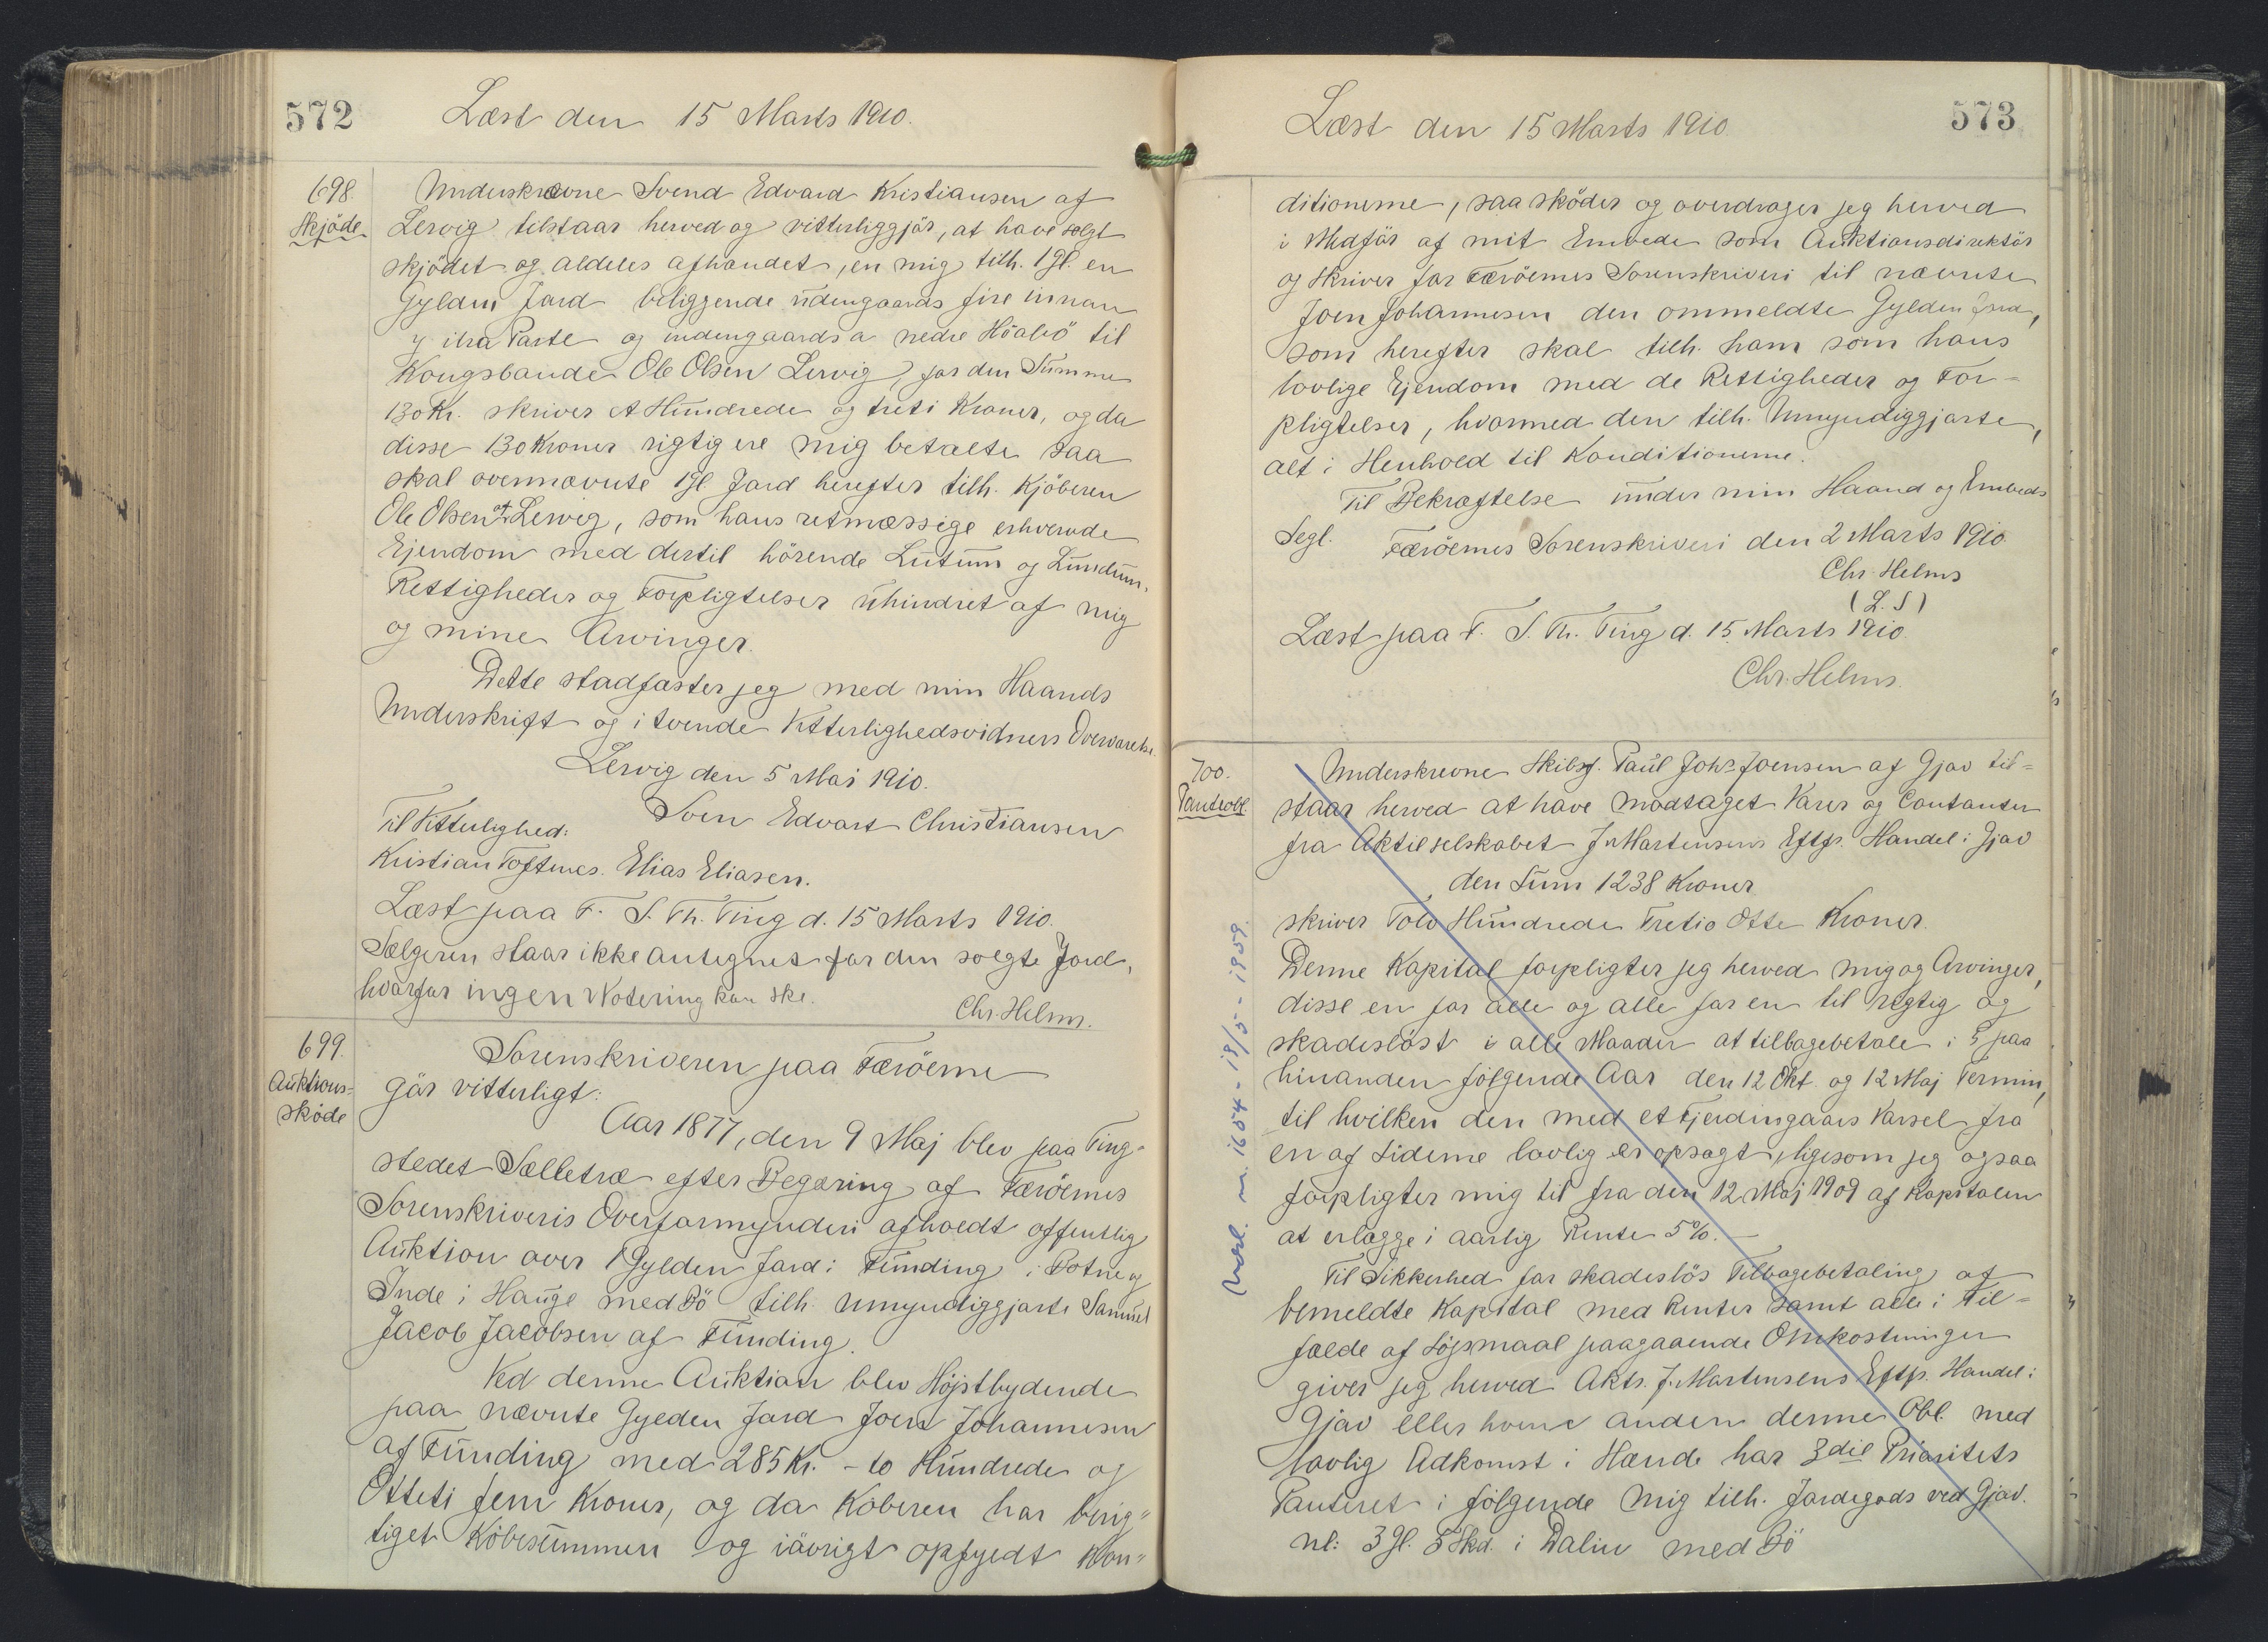 572
Læst den 15 Marts 1910.
698.
Skjöde
Underskrævne Svend Edvard Kristiansen af
Lervig tilstaar herved og vitterliggjör, at have solgt
skjödet og aldeles afhændet, en mig tilh. 1 gl. en
Gylden Jord beliggende udengaards fire innan
y itra Parte og indengaards a nedre Höabö til
Kongsbonde Ole Olsen Lervig, for den Summa
130 Kr. skriver et Hundrede og treti Kroner, og da
disse 130 Kroner rigtig ere mig betalte saa
skal ovennævnte 1 gl Jord herefter tilh. Kjöberen
Ole Olsen af Lervig, som hans retmæssige erhvervede
Ejendom med dertil hörende Lutum og Lundum,
Rettigheder og Forpligtelser uhindret af mig
og mine Arvinger.
Dette stadfæster jeg med min Haands
Underskrift og i tvende Vitterlighedsvidners Overværelse.
Lervig den 5 Mai 1910.
Sven Edvart Christiansen
Til Vitterlighed:
Kristian Toftnes. Elias Eliasen.
Læst paa F. S. Th. Ting d. 15 Marts 1910.
Sælgeren staar ikke antegnet for den solgte Jord,
hvorfor ingen Notering kan ske.
Chr. Helms.
699.
Auktions-
sköde
Sorenskriveren paa Færöerne
Gör vitterligt:
Aar 1877, den 9 Maj blev paa Ting-
stedet Sælletræ efter Begæring af Færöernes
Sorenskriveris Overformynderi afholdt offentlig
Auktion over 1 Gylden Jord i Funding i Botne og
Inde i Hauge med Bö tilh. Umyndiggjorte Samuel
Jacob Jacobsen af Funding.
Ved denne Auktion blev Højstbydende
paa nævnte Gylden Jord Joen Johannesen
af Funding med 285 Kr. - to Hundrede og
Otteti fem Kroner, og da Köberen har berig"
tiget Köbesummen og iövrigt opfyldt Kon"
573
Læst den 15 Marts 1910.
ditionerne, saa sköder og overdrager jeg herved
i Medför af mit Embede som Auktionsdirektör
og Skriver for Færöernes Sorenskriveri til nævnte
Joen Johannesen den ommeldte Gylden Jord,
som herefter skal tilh. ham som hans
lovlige Ejendom med de Rettigheder og For-
pligtelser, hvormed den tilh. Umyndiggjorte,
alt i Henhold til Konditionerne.
Til Bekræftelse under min Haand og Embeds
Segl.
Færöernes Sorenskriveri den 2 Marts 1910.
Chr. Helms
(L. S)
Læst paa F. S. Th. Ting d. 15 Marts 1910.
Chr. Helms.
700.
Panteobl.
Underskrevne Skibsf. Paul Johs Joensen af Gjov til-
staar herved at have modtaget Varer og Contanter
fra Aktieselskabet J. Mortensens Eftf. Handel i Gjov
den Sum 1238 Kroner
skriver Tolv Hundrede Tretio Otte Kroner.
Denne Kapital forpligter jeg herved mig og Arvinger,
disse en for alle og alle for en til rigtig og
skadesløst i alle Maader at tilbagebetale i 5 paa
hinanden følgende Aar den 12 Okt. og 12 Maj Termin,
til hvilken den med et Fjerdingaars Varsel fra
en af Siderne lovlig er opsagt, ligesom jeg ogsaa
forpligter mig til fra den 12 Maj 1909 af Kapitalen
at erlægge i aarlig Rente 5 %.
Til Sikkerhed for skadeslös Tilbagebetaling af
bemeldte Kapital med Renter samt alle i Til-
fælde af Søgsmaal paagaaende Omkostninger
giver jeg herved Akts. J. Mortensens Eftf. Handel i
Gjov eller hvem anden denne Obl. med
lovlig Adkomst i Hænde har 3die Prioritets
Panteret i følgende mig tilh. Jordegods ved Gjov.
nl: 3 gl. 5 Skd. i Dalin med Bö
n. 1654 - 18/5 - 1959.